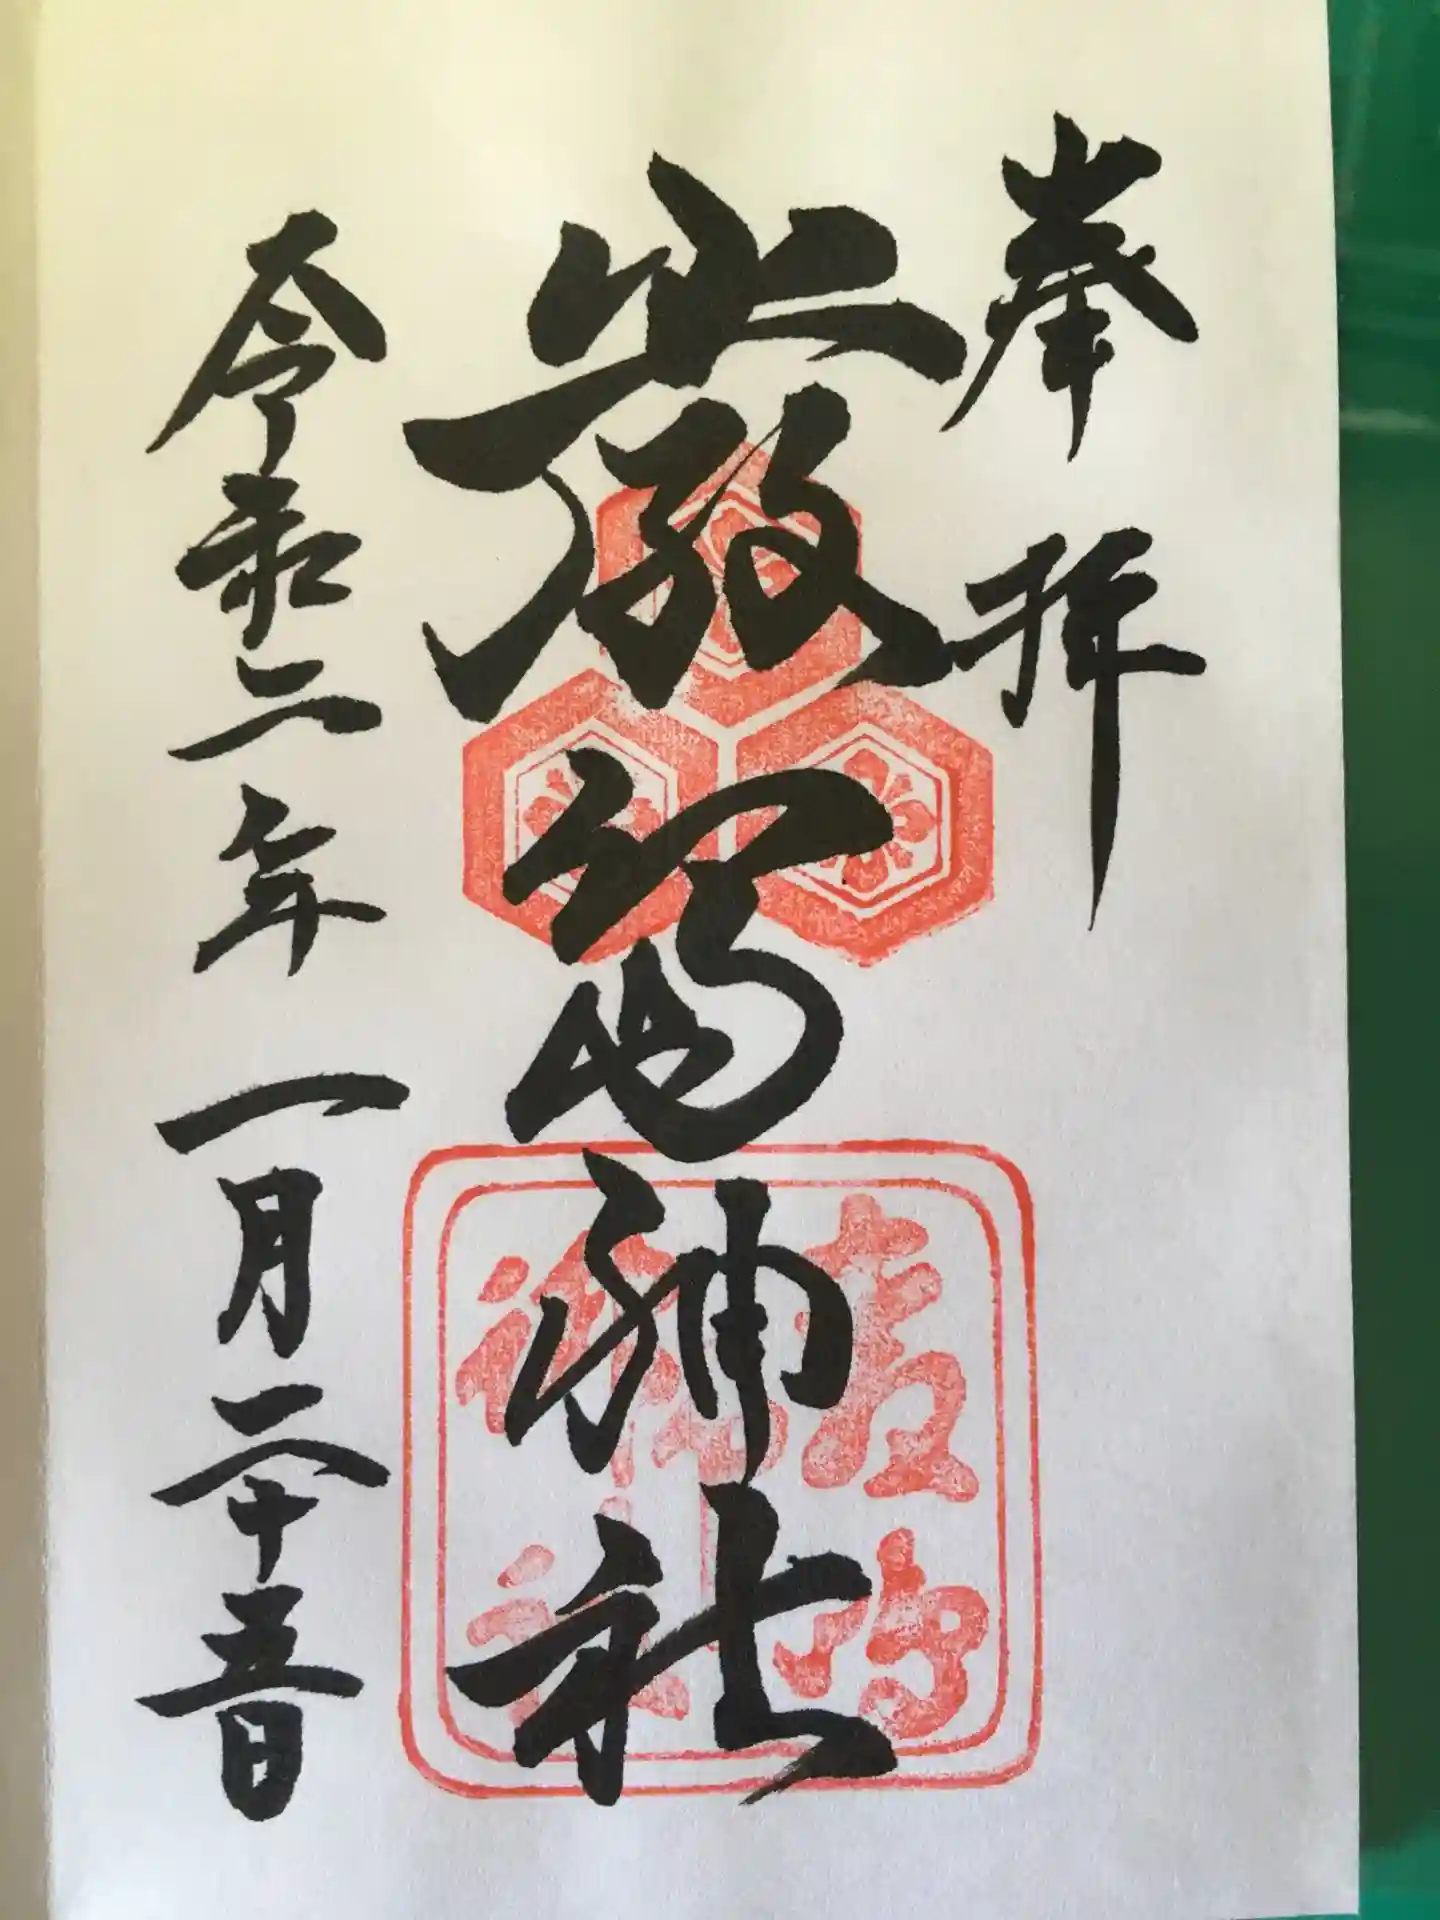 奉拝
厳島神社
令和二年一月二十五日